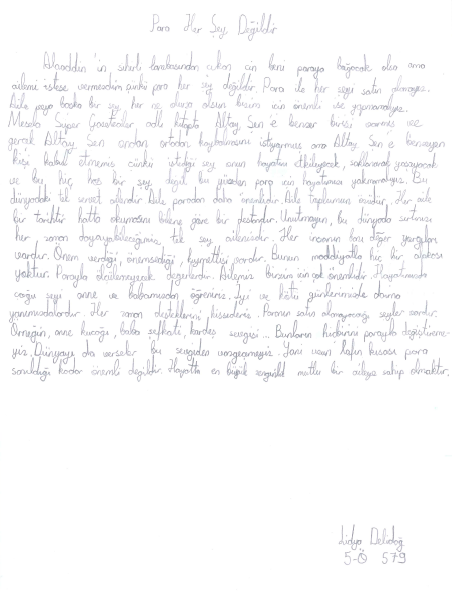 Para Her Şey Değildir
Alaaddin'in sihirli lambasından çıkan cin beni paraya boğacak olsa ama
ailemi istese vermezdim çünkü para her şey değildir. Para ile her şeyi satın alamayız.
Aile veya başka bir şey her ne olursa olsun bizim için önemli ise yapmamalıyız.
Mesela Süper Gazeteciler adlı kitapta Altay Şen'e benzer birisi varmış ve
gerçek Altay Şen ondan ortadan kaybolmasını istiyormuş ama Altay Şen'e benzeyen
kişi kabul etmemiş çünkü istediği şey onun hayatını etkileyecek, saklanarak yaşayacak
ve bu hiç hoş bir şey değil bu yüzden para için hayatımızı yakmamalıyız. Bu
dünyadaki tek servet ailendir. Aile paradan daha önemlidir. Aile toplumun özüdür. Her aile
bir tarihtir hatta okumasını bilene göre bir destandır. Unutmayın, bu dünyada sırtınızı
her zaman dayayabileceğiniz tek şey ailenizdir. Her insanın bazı değer yargıları
vardır. Önem verdiği, önemsediği, kıymetlisi vardır. Bunun maddiyatla hiç bir alakası
yoktur. Parayla ölçülemeyecek değerlerdir. Ailemiz bizim için çok önemlidir. Hayatımızda
çoğu şeyi anne ve babamızdan öğreniriz. İyi ve kötü günlerimizde daima
yanımızdalardır. Her zaman desteklerini hissederiz. Paranın satın alamayacağı şeyler vardır.
Örneğin, anne kucağı, baba şefkati, kardeş sevgisi... Bunların hiçbirini parayla değiştireme-
yiz. Dünyayı da verseler bu sevgiden vazgeçmeyiz. Yani uzun lafın kısası para
sanıldığı kadar önemli değildir. Hayatta en büyük zenginlik mutlu bir aileye sahip olmaktır.
Lidya Delidağ
5-Ö 579